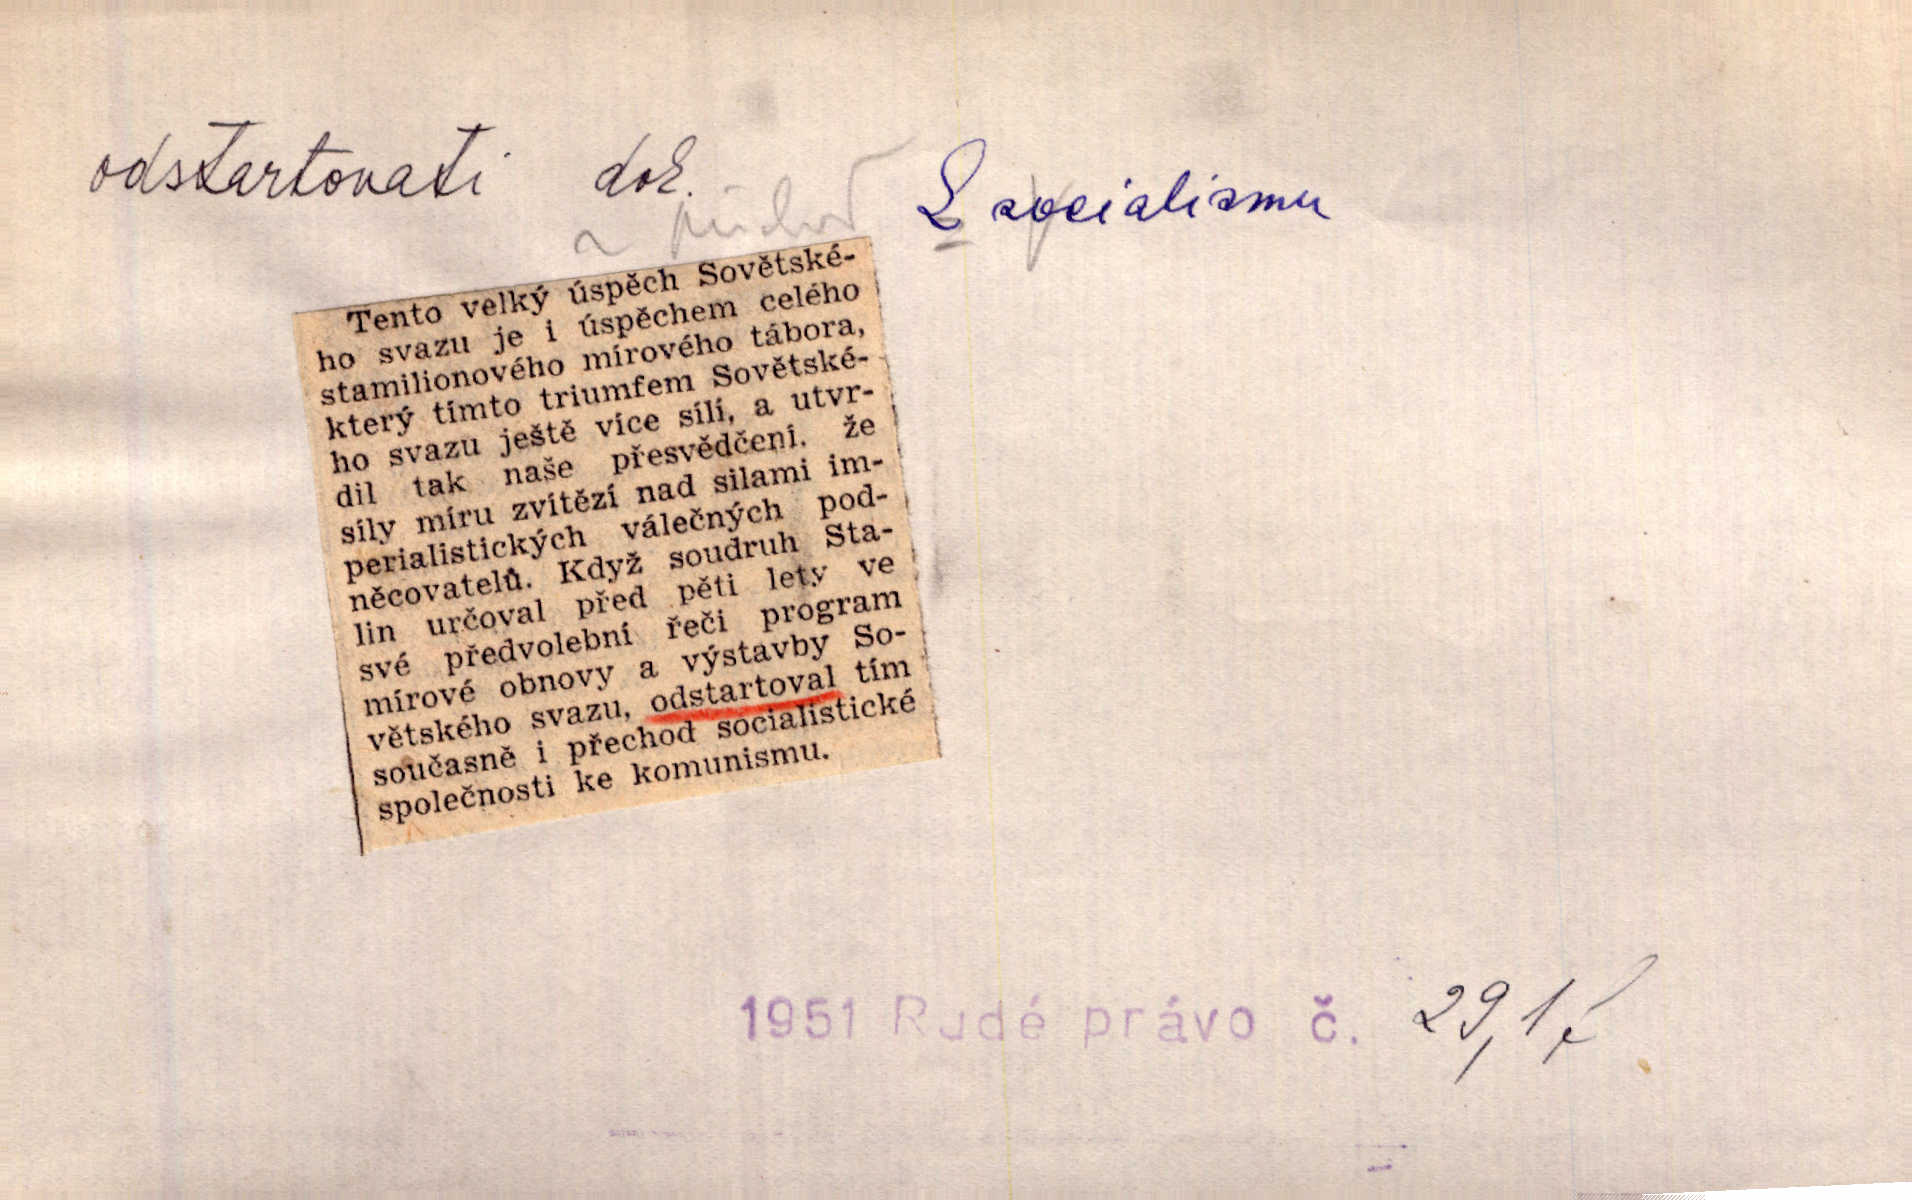 odstartovati dok. k socialismu
přechod
Tento velký úspěch Sovětské-
ho svazu je i úspěchem celého
stamilionového mírového tábora,
který tímto triumfem Sovětské-
ho svazu ještě více sílí, a utvr-
dil tak naše přesvědčení. že
síly míru zvítězí nad silami im-
perialistických válečných pod-
něcovatelů. Když soudruh Sta-
lin určoval před pěti lety ve
své předvolební řeči program
mírové obnovy a výstavby So-
větského svazu, odstartoval tím
současně i přechod socialistické
společnosti ke komunismu.
1951 Rudé právo č. 29,1